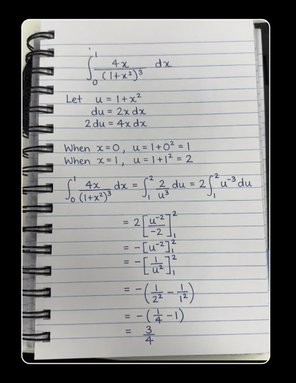 ∫₀¹ 4x/(1+x²)³ dx
Let u = 1+x²
du = 2x dx
2du = 4x dx
When x = 0, u = 1+0² = 1
When x = 1, u = 1+1² = 2
∫₀¹ 4x/(1+x²)³ dx = ∫₁² 2/u³ du = 2∫₁² u⁻³ du
= 2[u⁻²/-2]₁²
= -[u⁻²]₁²
= -[1/u²]₁²
= -(1/2² - 1/1²)
= -(1/4 - 1)
= 3/4